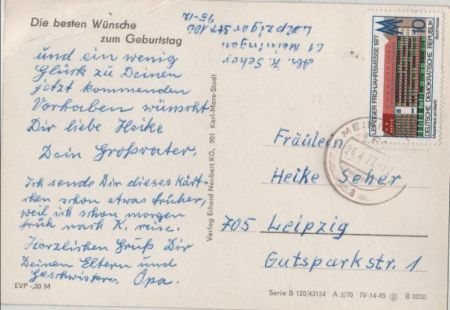 Die besten Wünsche
zum Geburtstag
und ein wenig
Glück zu Deinen
jetzt kommenden
Vorhaben wünscht
Dir liebe Heike
Dein Großvater.
Ich sende Dir dieses Kärt-
chen schon etwas früher,
weil ich schon morgen
früh nach K. reise.
Herzlichen Gruß Dir
Deinen Eltern und
Geschwistern. Opa.
EVP -,20 M
Abs. K. Seher
61 Meiningen
Leipziger Str.
Verlag Erhard Neubert KG, 901 Karl-Marx-Stadt
LEIPZIGER FRÜHJAHRSMESSE 1977
DEUTSCHE DEMOKRATISCHE REPUBLIK
10
Fräulein
Heike Seher
705 Leipzig
Gutsparkstr. 1
Serie B 120/43154 A 3/70 IV-14-45 B 0250